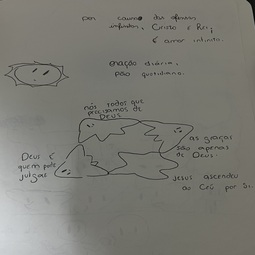 por causa das ofensas
infinitas, Cristo é Rei,
é amor infinito.
oração diária,
pão quotidiano.
nós todos que
precisamos de
Deus
as graças
são apenas
de Deus.
Deus é
quem pode
julgar
Jesus ascendeu
ao Céu por